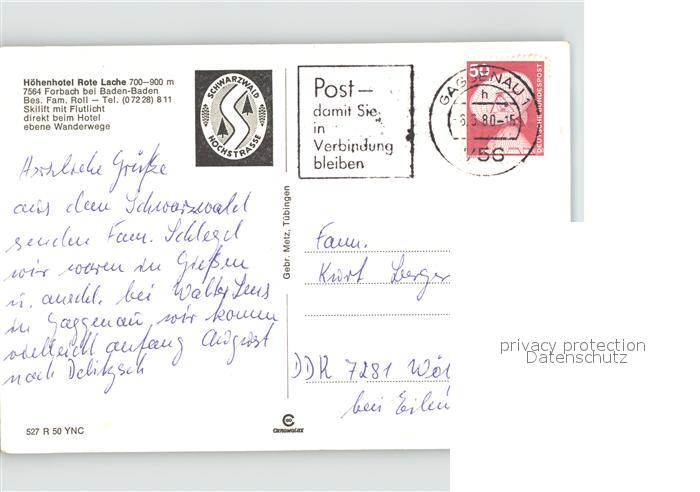 Höhenhotel Rote Lache 700–900 m
7564 Forbach bei Baden-Baden
Bes. Fam. Roll – Tel. (07228) 811
Skilift mit Flutlicht
direkt beim Hotel
ebene Wanderwege
SCHWARZWALD
HOCHSTRASSE
Post –
damit Sie
in
Verbindung
bleiben
GAGGENAU 1
h
-6.6.80-15
756
50
DEUTSCHE BUNDESPOST
Herzliche Grüße
aus dem Schwarzwald
senden Fam. Schlegel
wir waren in Gießen
u. anschl. bei Walter
in Gaggenau, wir kommen
vielleicht anfang August
nach Delitzsch
Gebr. Metz, Tübingen
Fam.
Kurt Berger
DDR 7281 Wöl
bei Eilen
527 R 50 YNC
privacy protection
Datenschutz